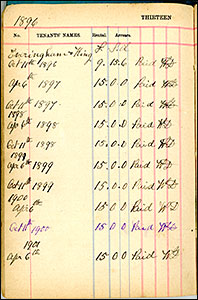 1896 THIRTEEN
No. TENANTS' NAMES Rental. Arrears.
& King £ s d
Oct 11th 1896 9.15.6 Paid WD
Apr 6th 1897 15.0.0 Paid WD
Oct 11th 1897 15.0.0 Paid WD
1898
Apr 6th 1898 15.0.0 Paid WD
Oct 11th 1898 15.0.0 Paid WD
1899
Apr 6th 1899 15.0.0 Paid WD
Oct 11th 1899 15.0.0 Paid WD
1900
Apr 6th 15.0.0 Paid WD
Oct 11th 1900 15 0 0 Paid WD
1901
Apr 6th 15 0 0 Paid WD